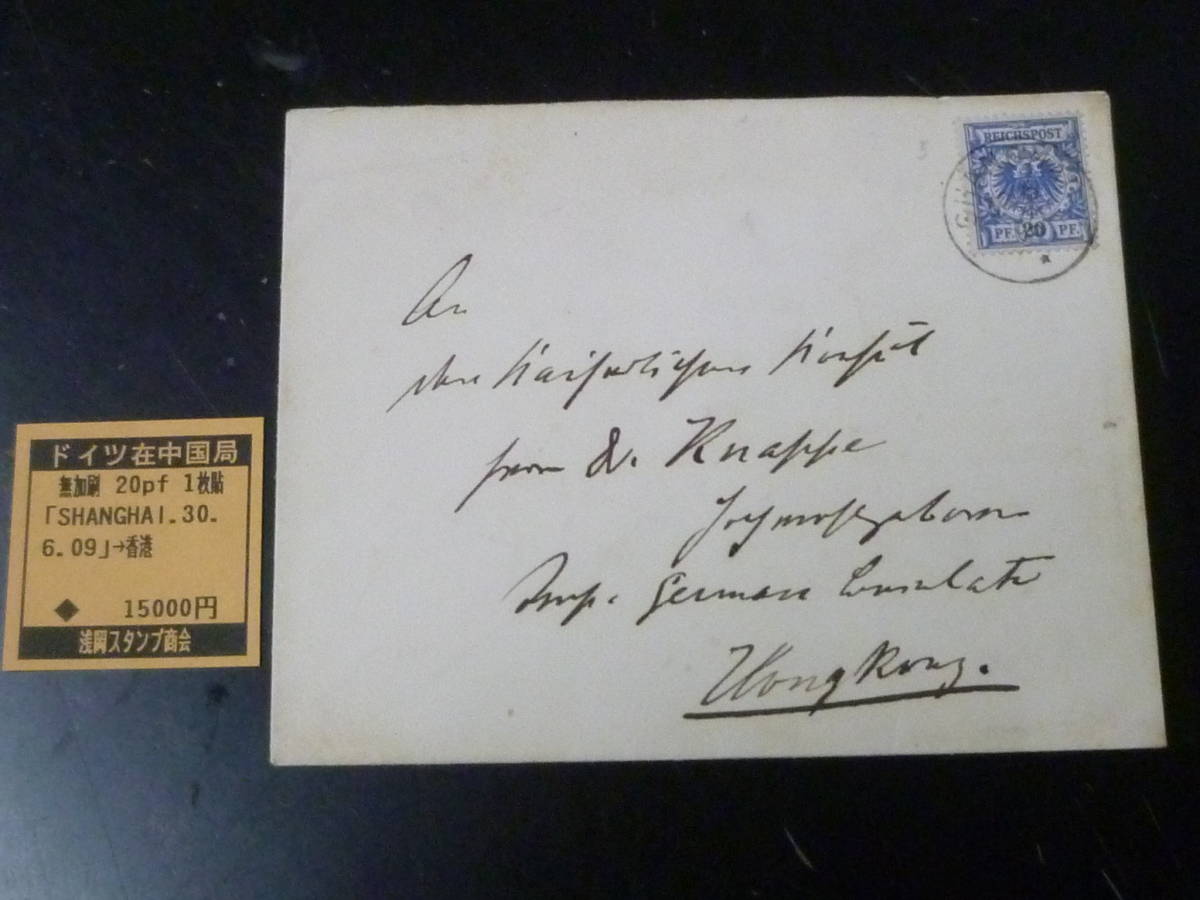 REICHSPOST
PF. 20 PF.
An
den Kaiserlichen Konsul
Herrn Dr. Knappe
Hochwohlgeboren
Imp. German Consulate
Hongkong.
ドイツ在中国局
無加刷 20pf 1枚貼
「SHANGHAI.30.
6.09」→香港
◆ 15000円
浅岡スタンプ商会